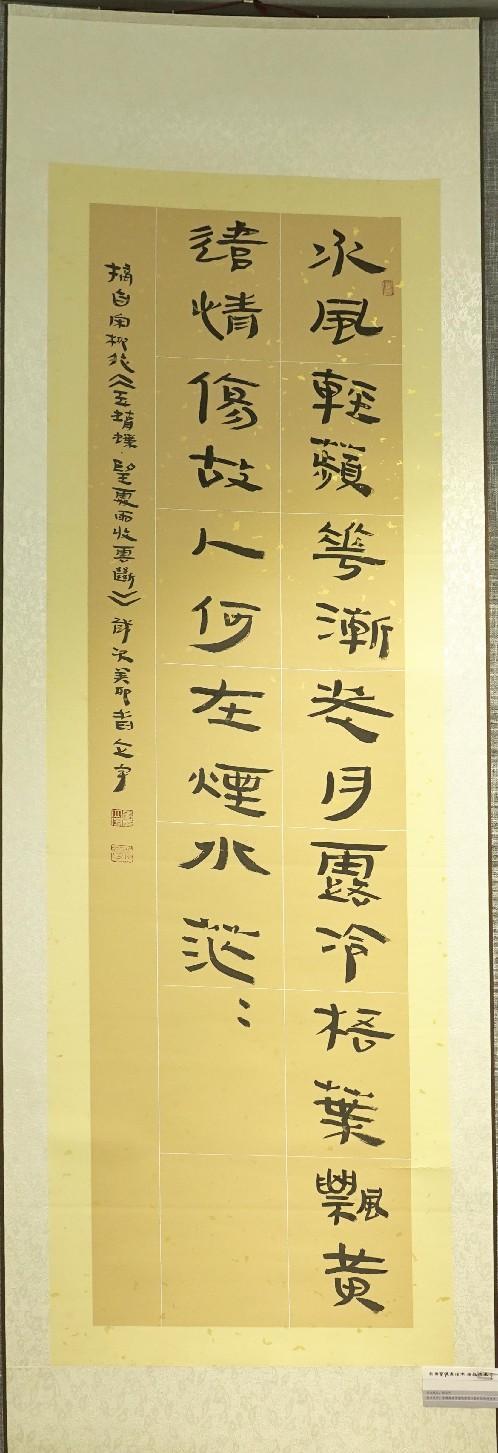 水風輕蘋華漸老月露冷梧葉飄黃
遣情傷故人何在煙水茫〻
摘自宋柳永《玉蝴蝶·望處雨收雲斷》歲次癸卯春